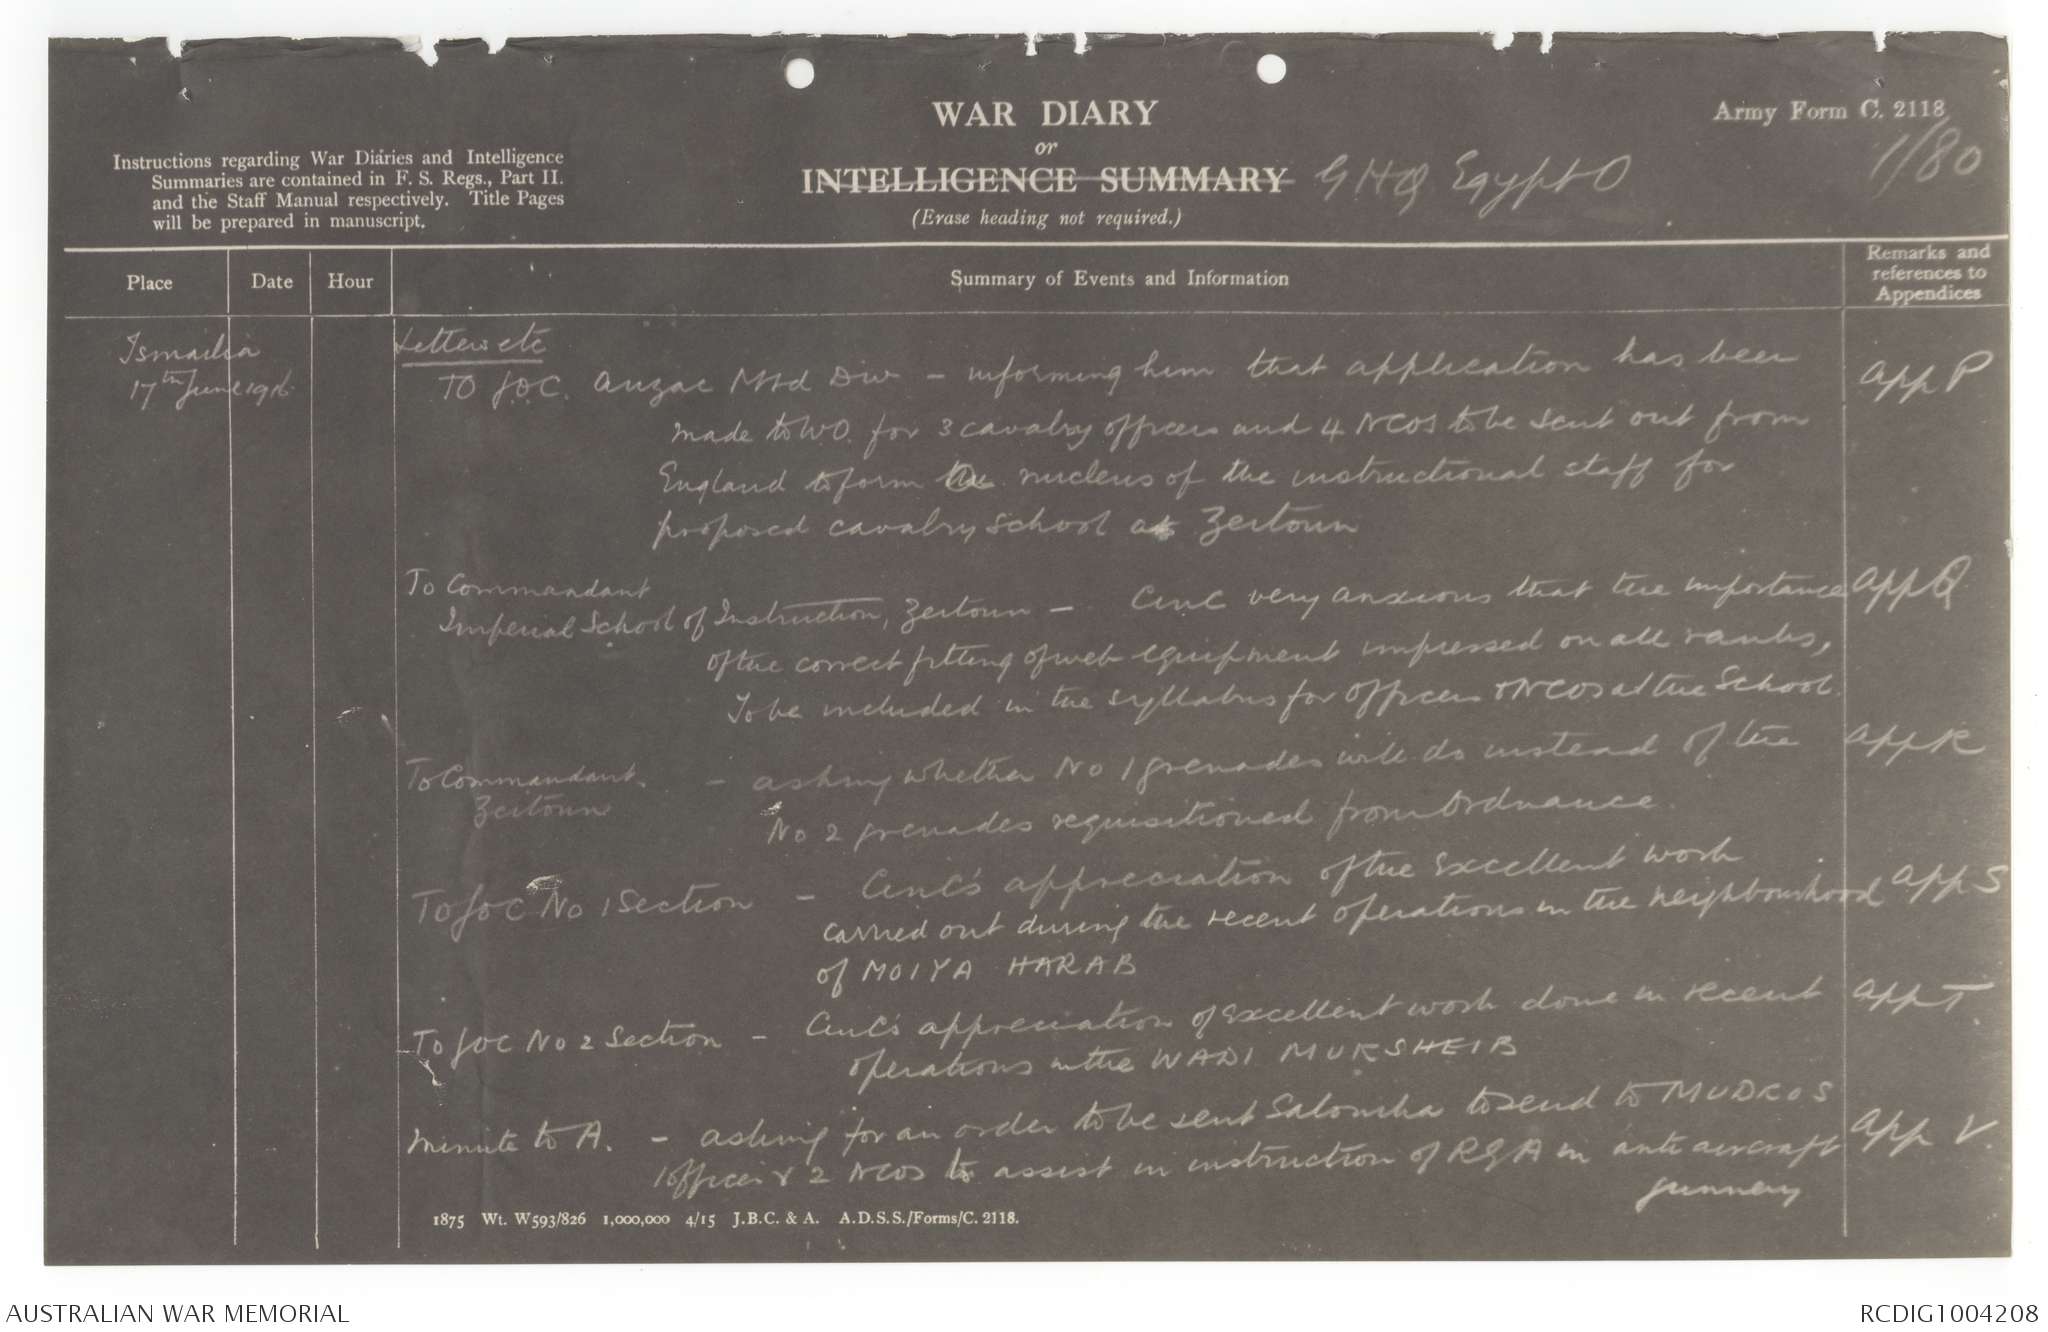 WAR DIARY
or
INTELLIGENCE SUMMARY
(Erase heading not required.)
GHQ Egypt O
Army Form C. 2118
1/80
Instructions regarding War Diaries and Intelligence
Summaries are contained in F. S. Regs., Part II.
and the Staff Manual respectively. Title Pages
will be prepared in manuscript.
Place
Date
Hour
Summary of Events and Information
Remarks and
references to
Appendices
Ismailia
17th June 1916
Letters etc
To GOC. Anzac Mtd Div - informing him that application has been
made to WO. for 3 cavalry officers and 4 NCOs to be sent out from
England to form the nucleus of the instructional staff for
proposed cavalry school at Zeitoun
App P
To Commandant
Imperial School of Instruction, Zeitoun - CinC very anxious that the importance
of the correct fitting of web equipment impressed on all ranks,
To be included in the syllabus for officers & NCOs at the School.
App Q
To Commandant. - asking whether No 1 grenades will do instead of the
Zeitoun
No 2 grenades requisitioned from Ordnance.
App R
To GOC No 1 Section - CinC's appreciation of the excellent work
carried out during the recent operations in the neighbourhood
of MOIYA HARAB
App S
To GOC No 2 Section - CinC's appreciation of excellent work done in recent
operations in the WADI MUKSHEIB
App T.
Minute to A. - asking for an order to be sent Salonika to send to MUDROS
1 officer & 2 NCOs to assist in instruction of RGA in anti aircraft
gunnery
App V.
1875 Wt. W593/826 1,000,000 4/15 J.B.C. & A. A.D.S.S./Forms/C. 2118.
AUSTRALIAN WAR MEMORIAL
RCDIG1004208